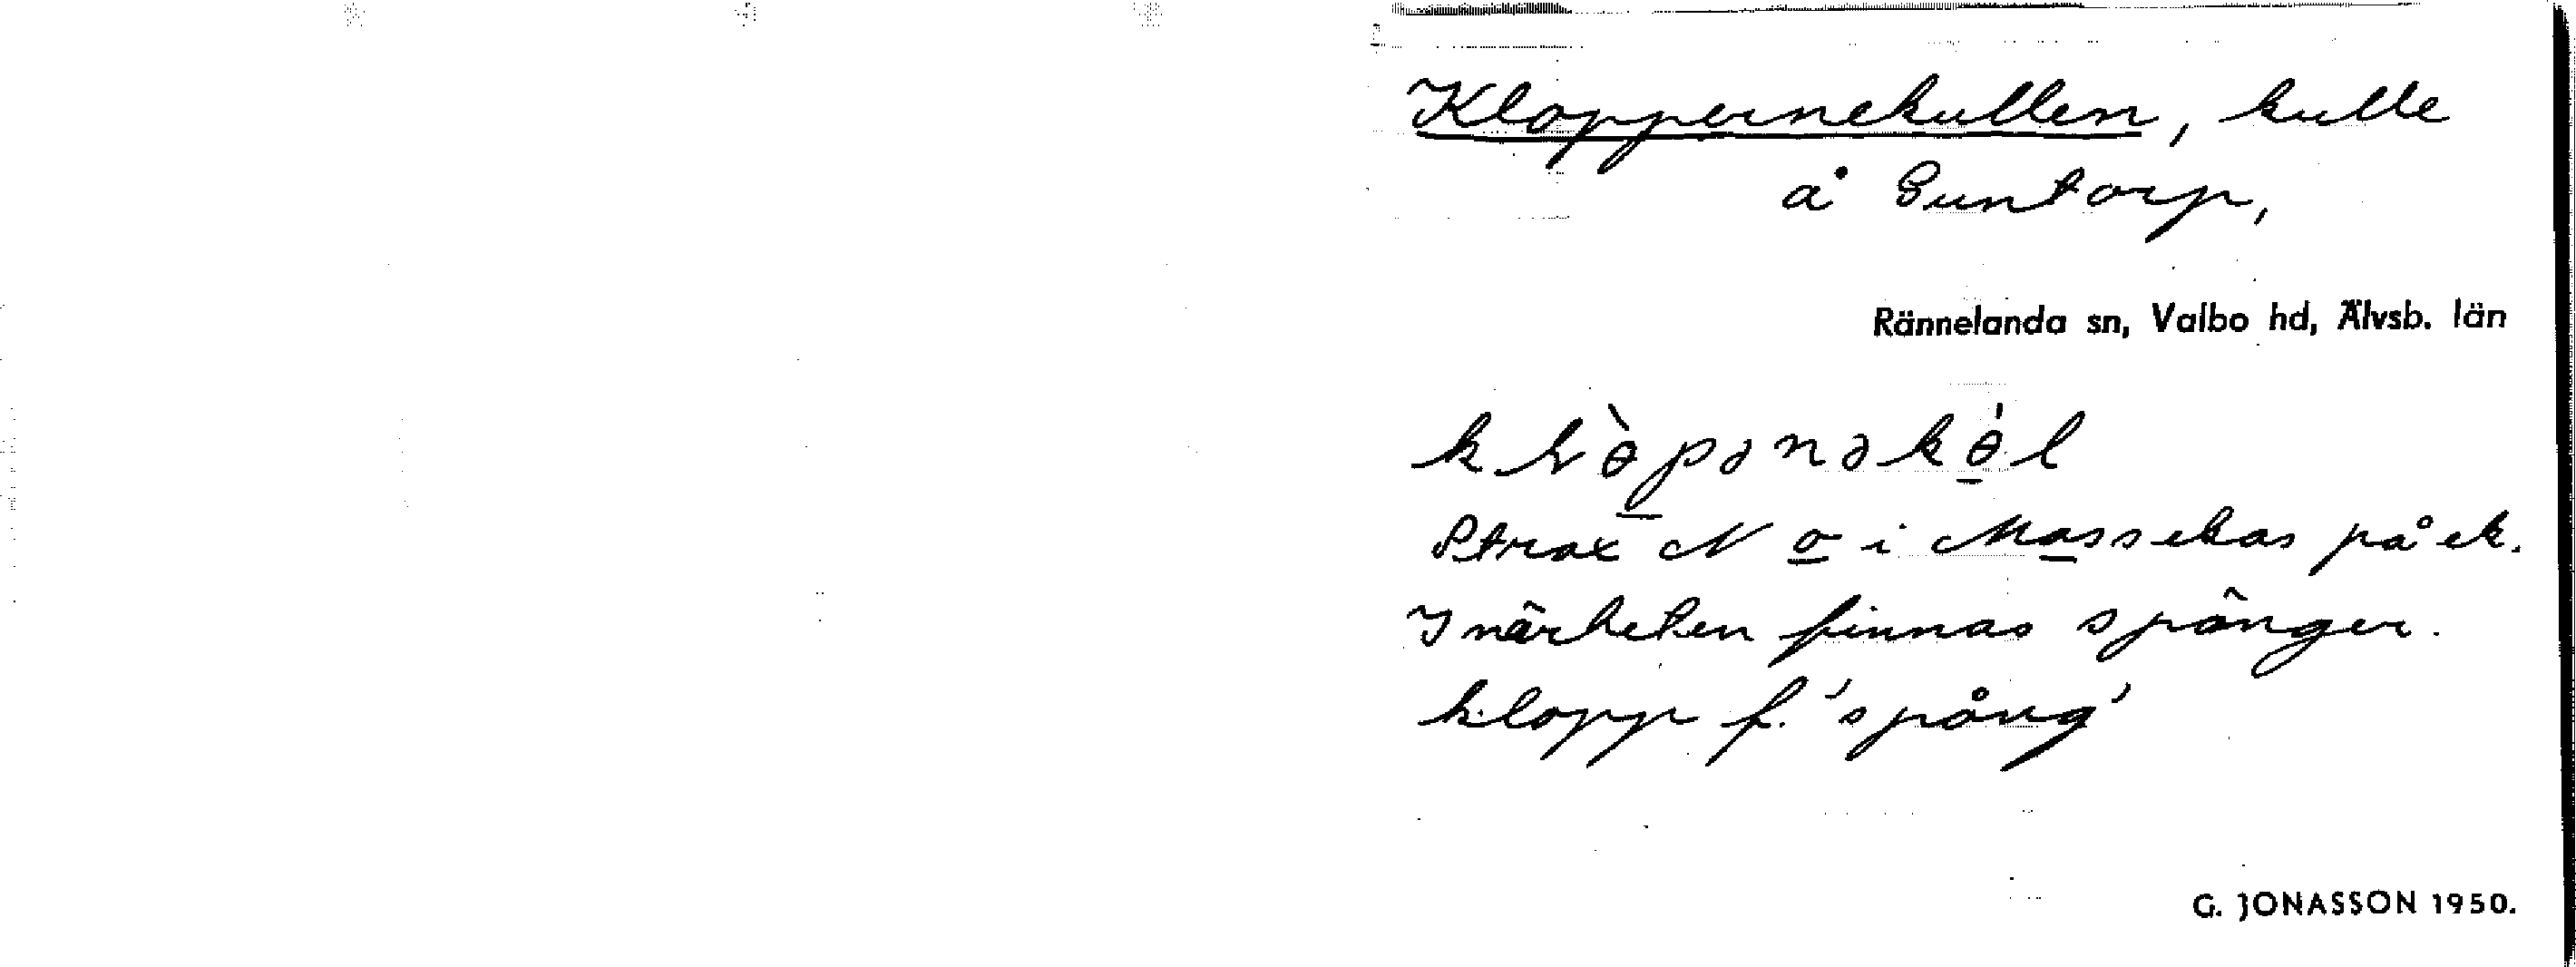 Kloppernekullen, kulle
å Guntorp,
Rännelanda sn, Valbo hd, Älvsb. län
Strax N o i Massekas på ek.
I närheten finnas spänger.
klopp f. 'spång'
G. JONASSON 1950.